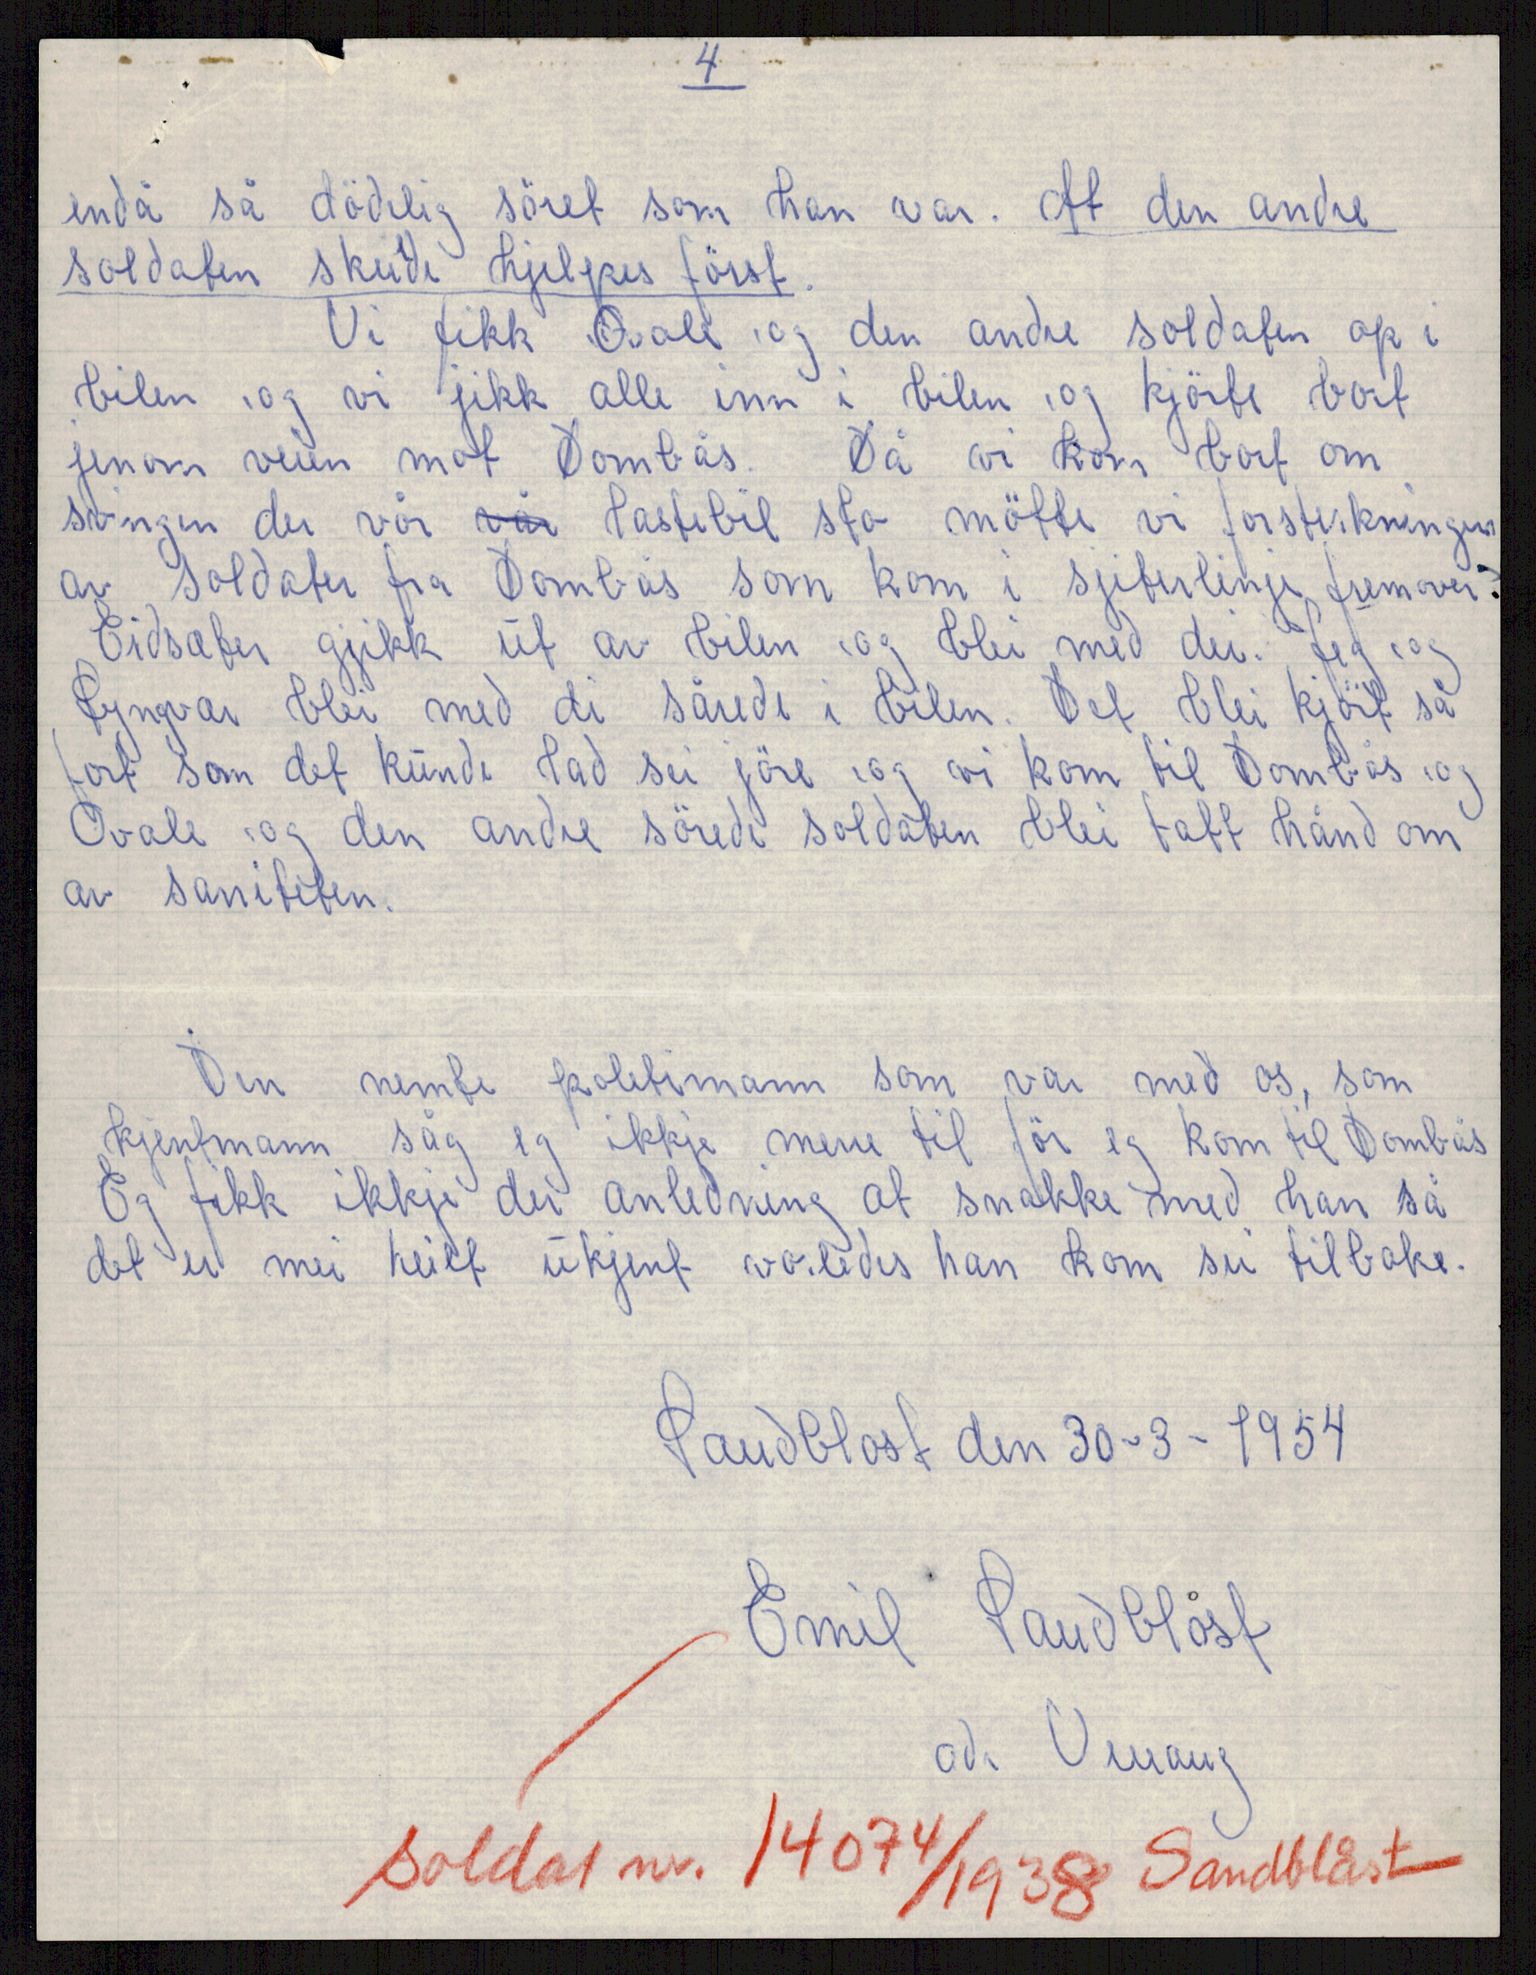 4
endå så dödelig söret som han var. At den andre
soldaten skulde hjelpes först.
Vi fikk Ovale og den andre soldaten op i
bilen og vi jikk alle inn i bilen og kjörte bort
jenom veien mot Dombås. Då vi kom bort om
svingen der vår vår lastebil sto mötte vi forsterkninger
av soldater fra Dombås som kom i sjiterlinje fremover.
Eidsæter gjikk ut av bilen og blei med dei. Jeg og
Syngvar blei med di sårede i bilen. Det blei kjört så
fort som det kunde lad sei jöre og vi kom til Dombås og
Ovale og den andre sörede soldaten blei tatt hånd om
av saniteten.
Den nemte poletimann som var med os, som
kjentmann såg eg ikkje mere til för eg kom til Dombås
Eg fikk ikkje der anledning at snakke med han så
det er mei heilt ukjent voledes han kom sei tilbake.
Saudblost den 30-3-1954
Emil Saudblåst
ad. Vevang
soldat nr. 14074/1938 Sandblåst